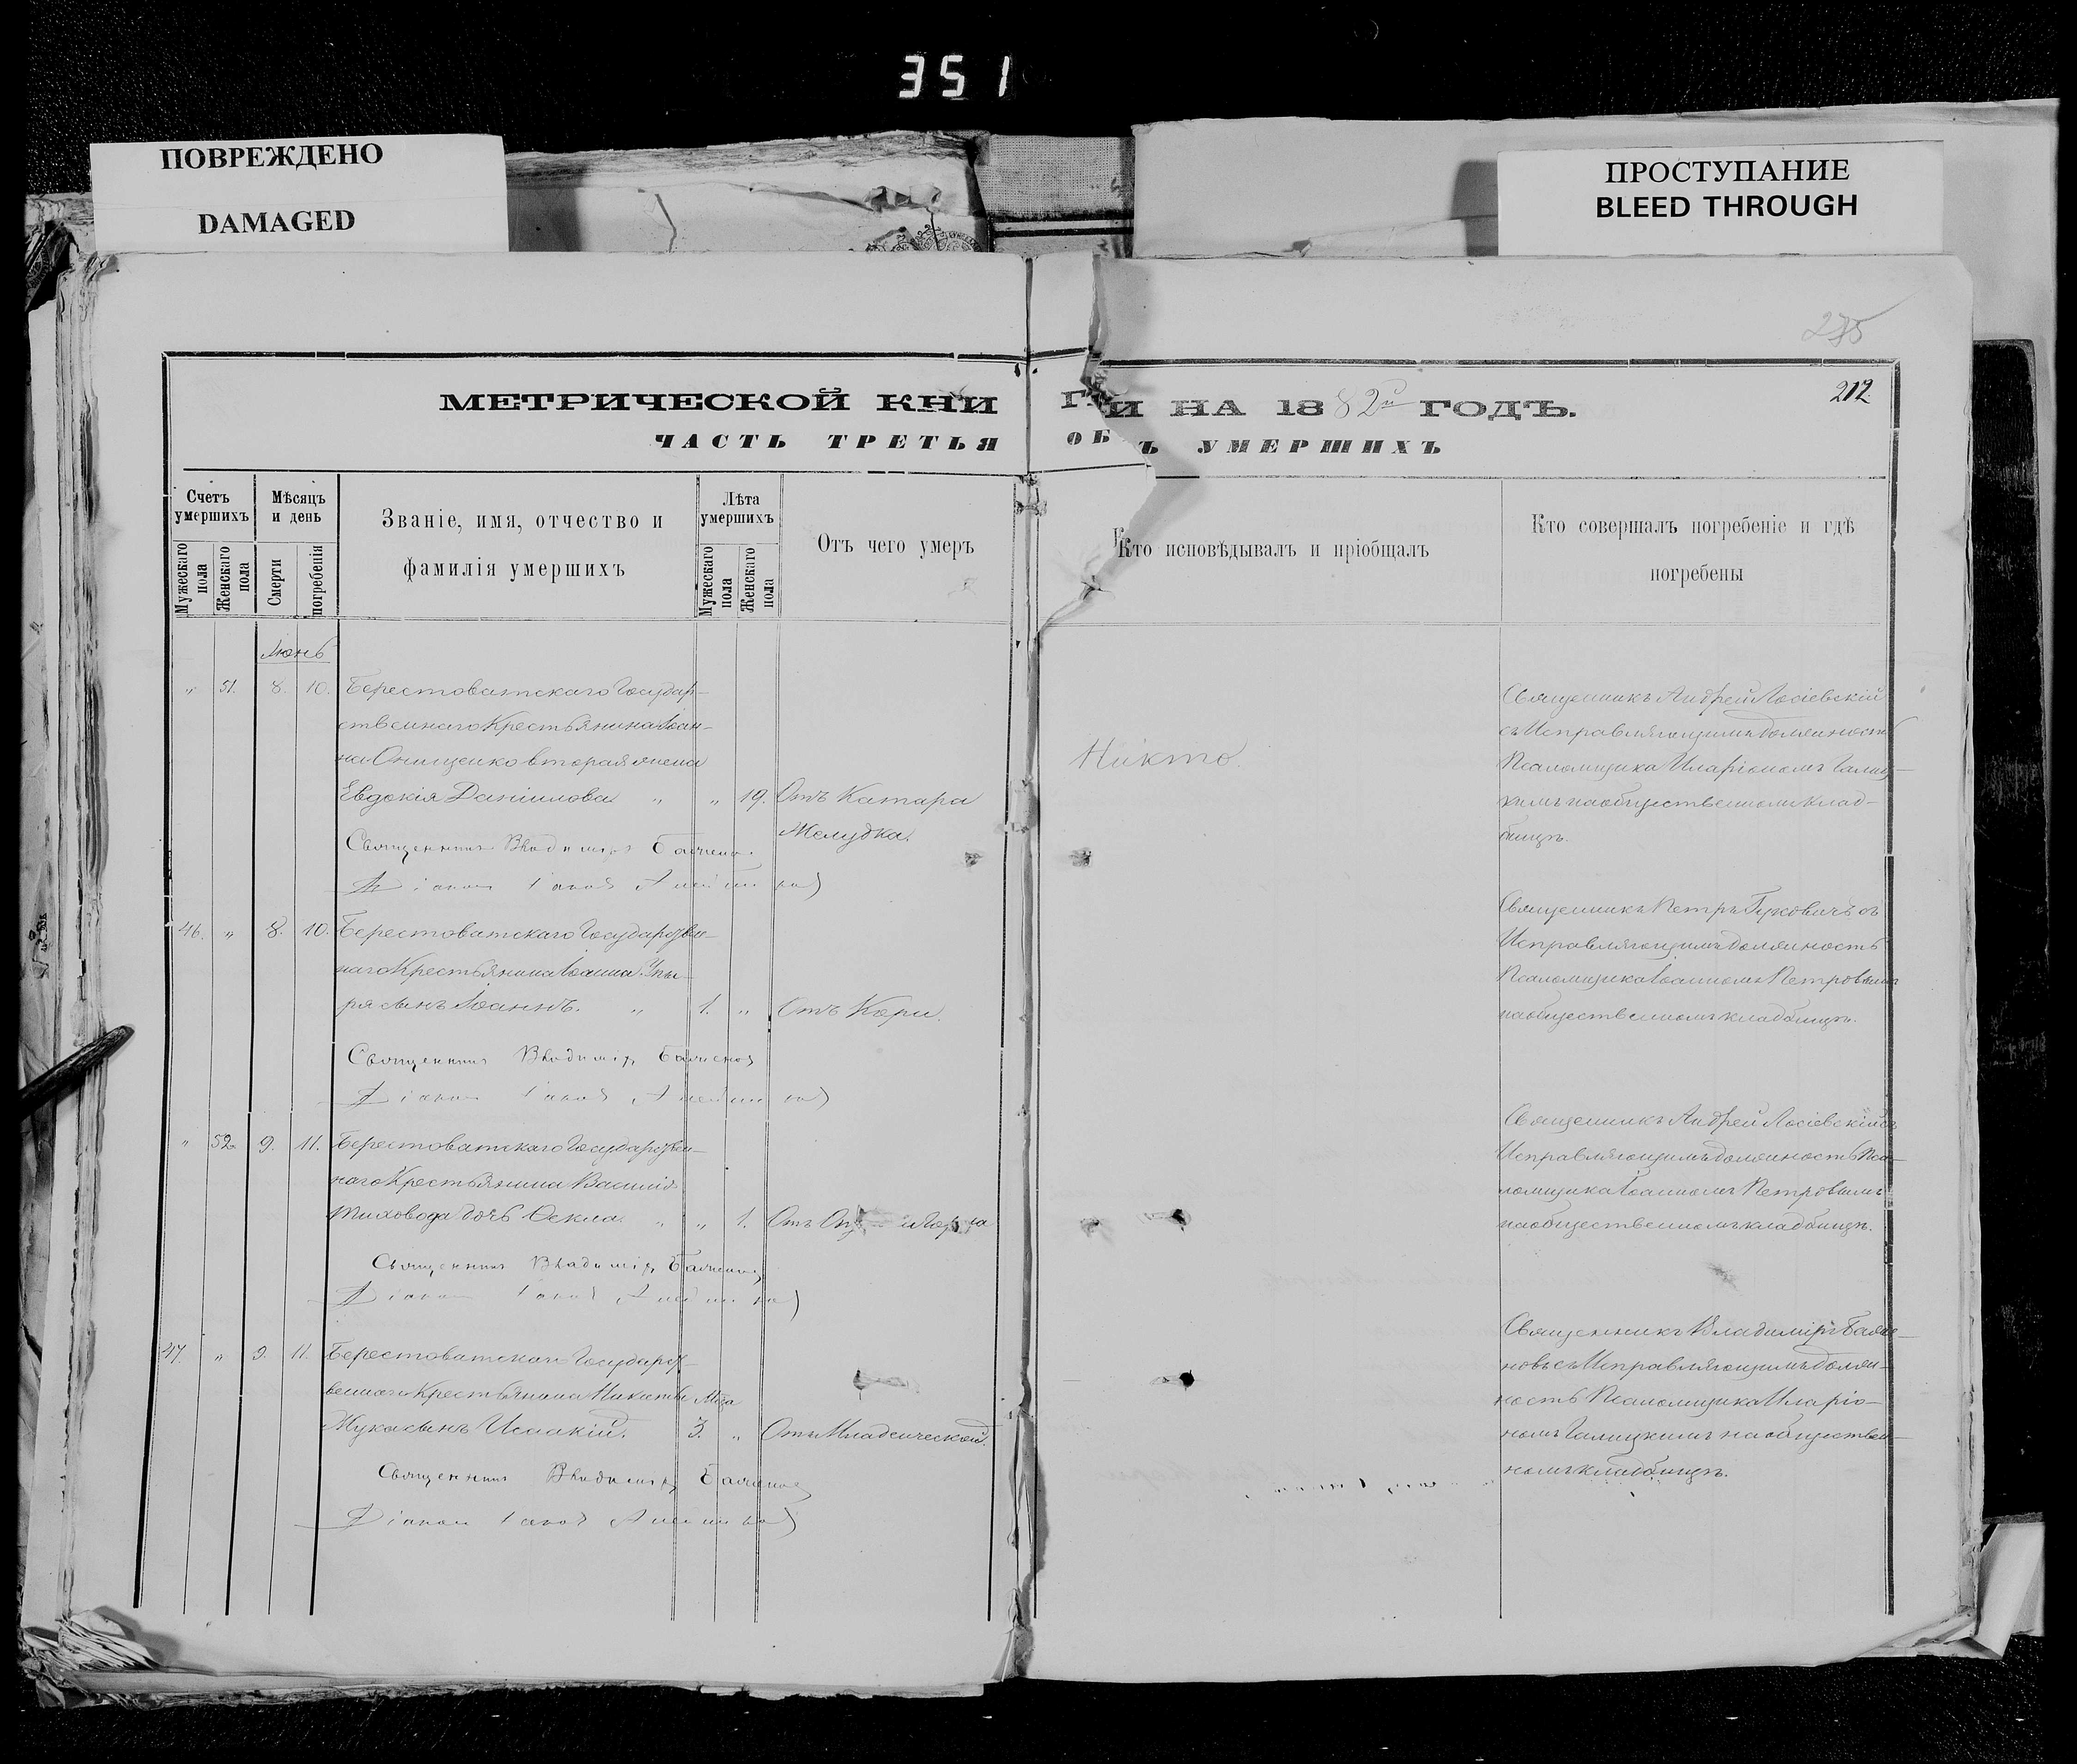 351
ПОВРЕЖДЕНО
DAMAGED
ПРОСТУПАНИЕ
BLEED THROUGH
285
212
МЕТРИЧЕСКОЙ КНИГИ НА 1882й ГОДЪ.
ЧАСТЬ ТРЕТЬЯ ОБЪ УМЕРШИХЪ
Счетъ умершихъ
Мужескаго пола
Женскаго пола
Мѣсяцъ и день
Смерти
погребенія
Званіе, имя, отчество и
фамилія умершихъ
Лѣта умершихъ
Мужескаго пола
Женскаго пола
Отъ чего умеръ
Кто исповѣдывалъ и пріобщалъ
Кто совершалъ погребеніе и гдѣ
погребены
Іюнь
" 51. 8. 10. Берестоватскаго Государ-
ственнаго Крестьянина Іоан-
на Онищенко вторая жена
Евдокія Даніилова " " 19. Отъ Катара
Желудка.
Священникъ Владиміръ
Діаконъ Іаковъ
Никто.
Священникъ Андрей Лосіевскій
съ Исправляющимъ должность
Псаломщика Иларіономъ Галиц-
кимъ на общественномъ клад-
бищѣ.
46. " 8. 10. Берестоватскаго Государствен-
наго Крестьянина Іоанна
ря сынъ Іоаннъ. " 1. " Отъ Кори.
Священникъ Владиміръ
Діаконъ Іаковъ
Священникъ Петръ Гуковичъ съ
Исправляющимъ должность
Псаломщика Іоанномъ Петровымъ
на общественномъ кладбищѣ.
" 52. 9. 11. Берестоватскаго Государствен-
наго Крестьянина Василія
Тиховода дочь Ѳекла. " " 1. Отъ
Священникъ Владиміръ
Діаконъ Іаковъ
Священникъ Андрей Лосіевскій съ
Исправляющимъ должность Пса-
ломщика Іоанномъ Петровымъ
на общественномъ кладбищѣ.
47. " 9. 11. Берестоватскаго Государст-
веннаго Крестьянина Никиты М-ца
Жука сынъ Исаакій. 3. " Отъ Младенческой.
Священникъ Владиміръ
Діаконъ Іаковъ
Священникъ Владиміръ
новъ съ Исправляющимъ долж-
ность Псаломщика Иларіо-
номъ Галицкимъ на обществен-
номъ кладбищѣ.